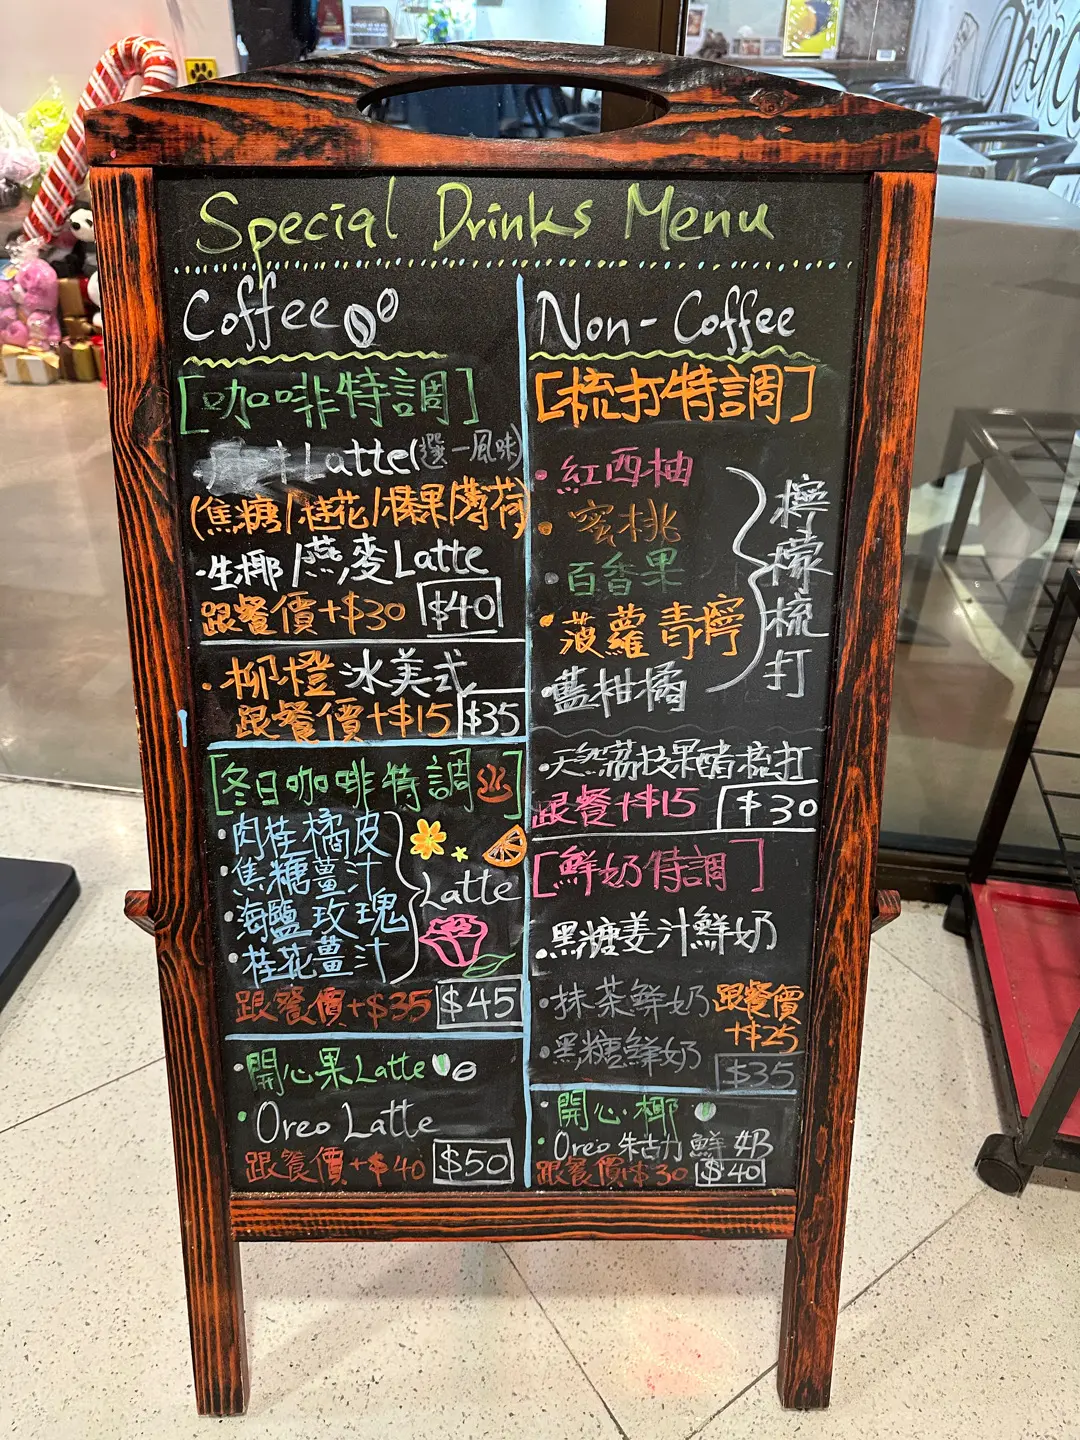 Special Drinks Menu
Coffee
[咖啡特調]
Latte(選一風味)
(焦糖/桂花/榛果/薄荷)
·生椰/燕麥Latte
跟餐價+$30 $40
·柳橙冰美式
跟餐價+$15 $35
[冬日咖啡特調♨]
·肉桂橘皮
·焦糖薑汁
·海鹽玫瑰
·桂花薑汁
Latte
跟餐價+$35 $45
·開心果Latte
·Oreo Latte
跟餐價+$40 $50
Non-Coffee
[梳打特調]
·紅西柚
·蜜桃
·百香果
·菠蘿青檸
·藍柑橘
檸檬梳打
·天然荔枝果醋梳打
跟餐+$15 $30
[鮮奶特調]
·黑糖姜汁鮮奶
·抹茶鮮奶
·黑糖鮮奶
跟餐價
+$25
$35
·開心椰
·Oreo 朱古力鮮奶
跟餐價+$30 $40